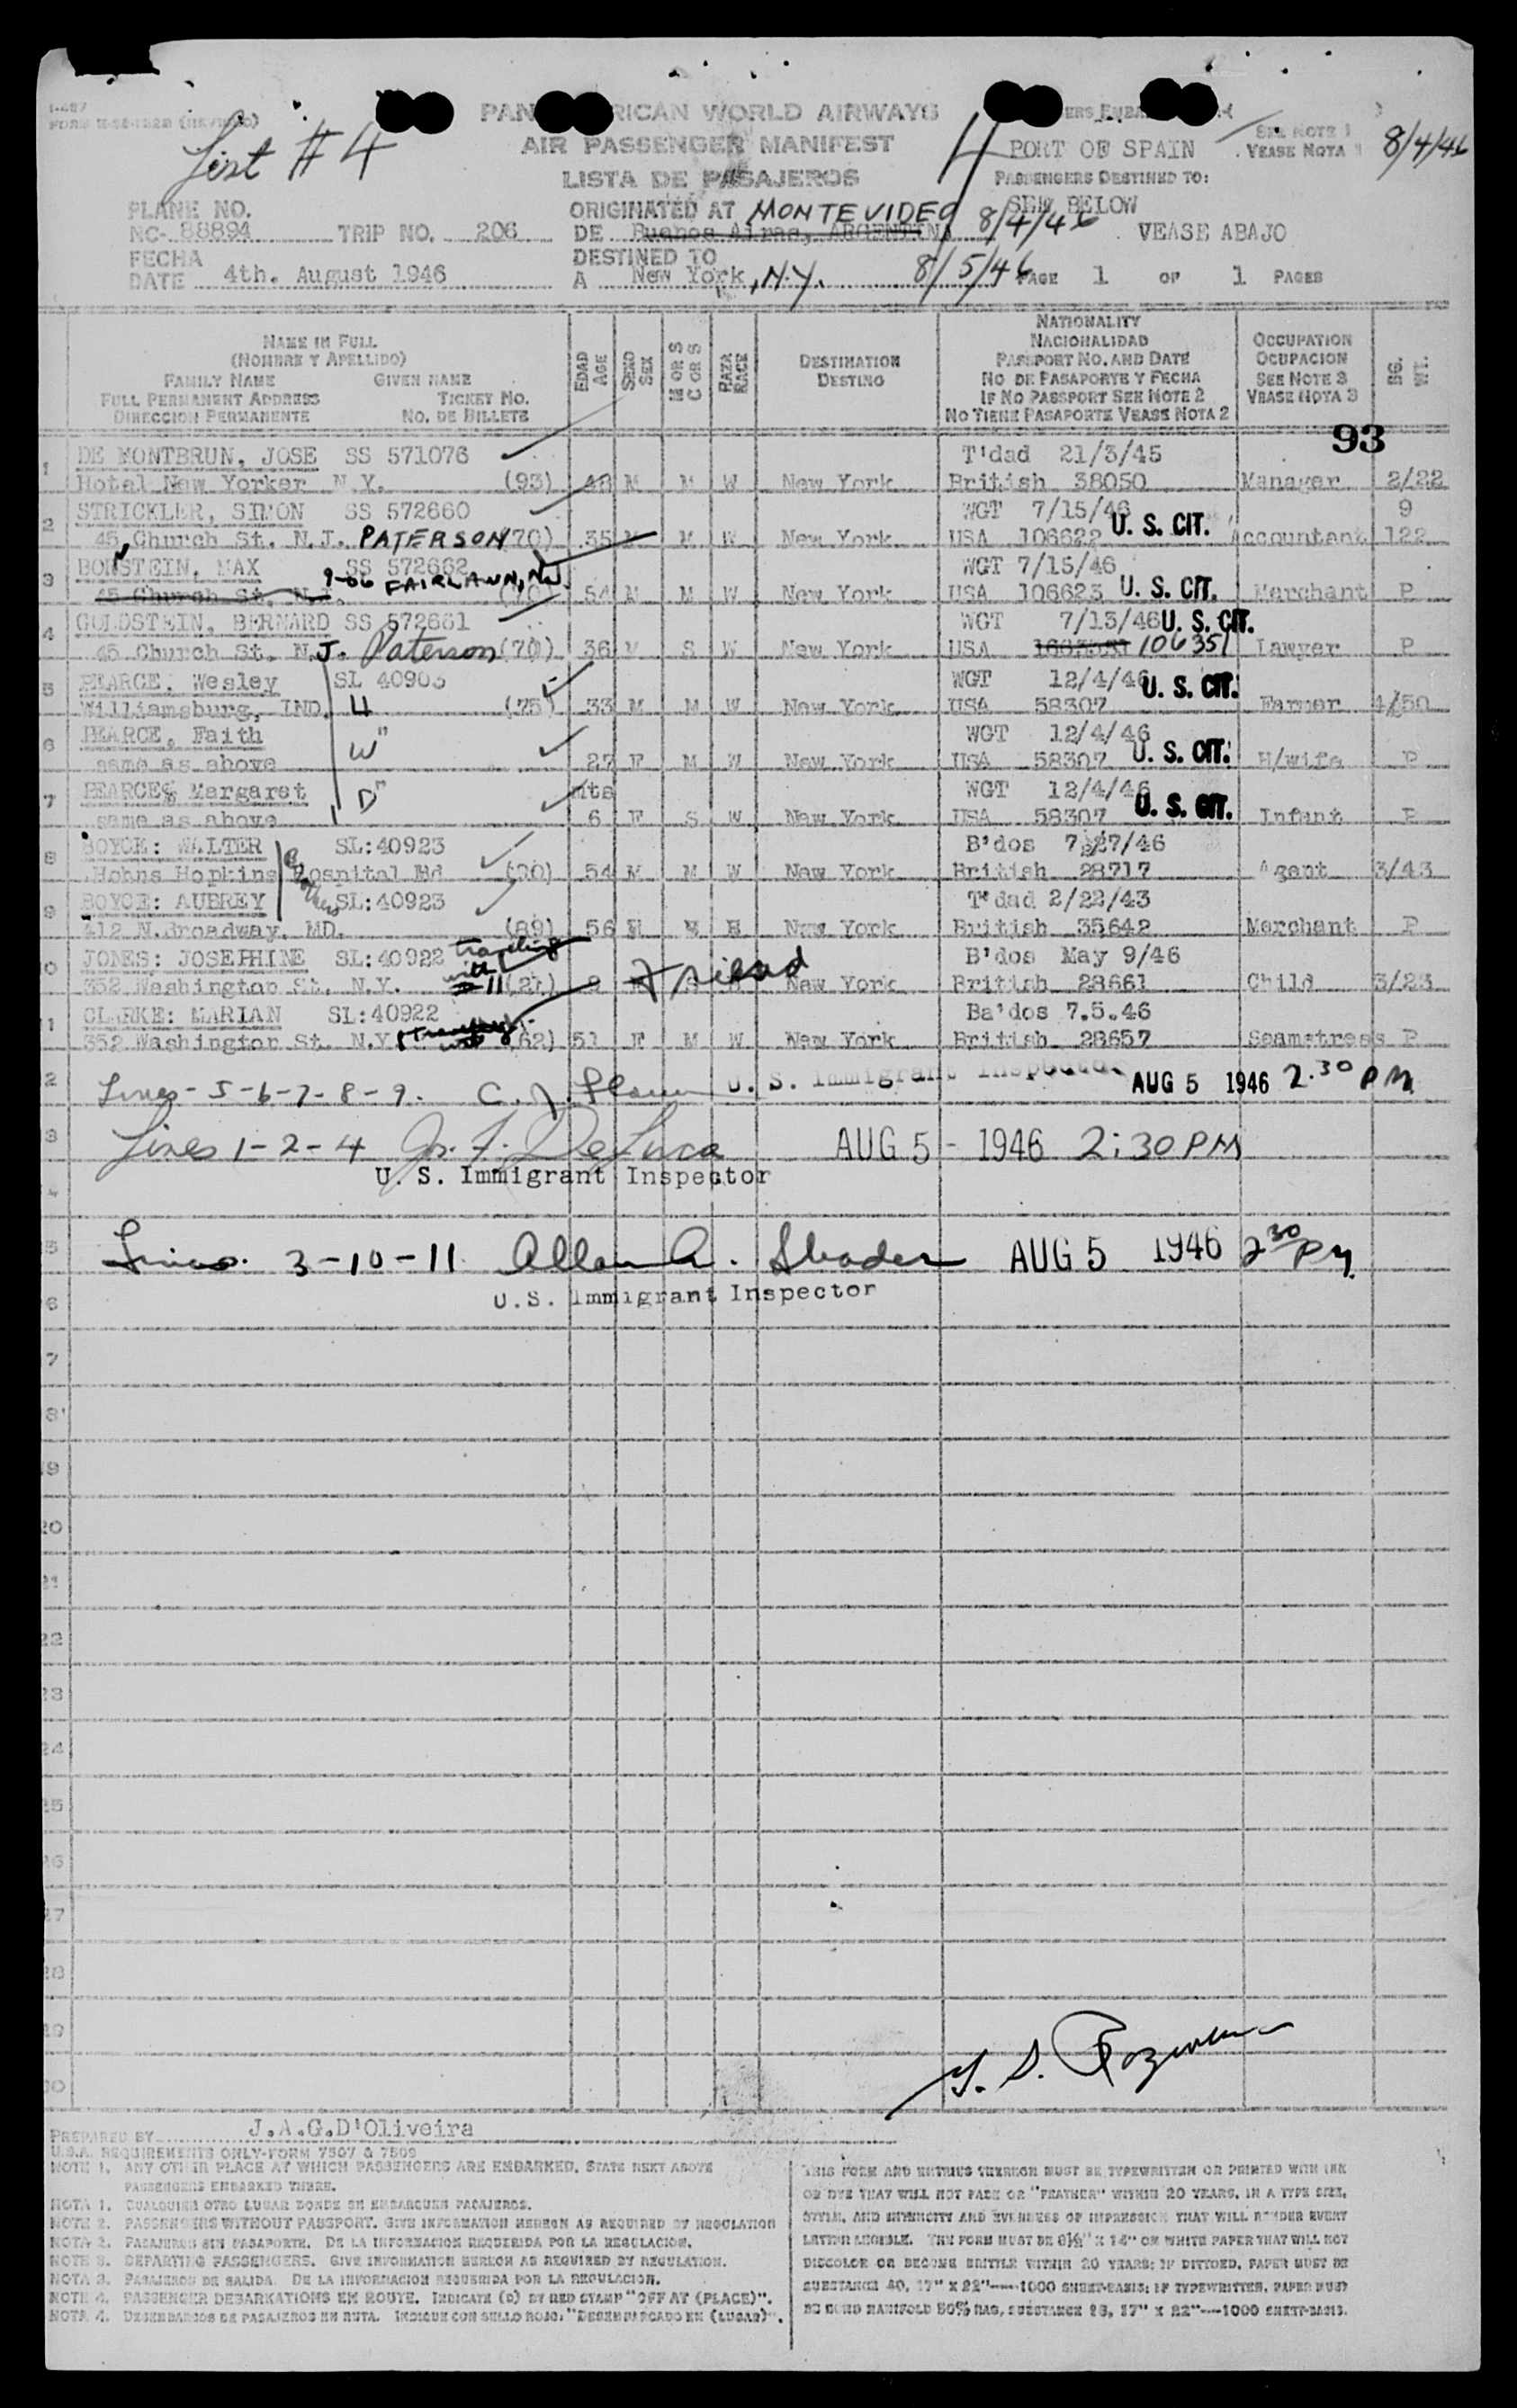 I-467
List # 4
PAN RICAN WORLD AIRWAYS
AIR PASSENGER MANIFEST
LISTA DE PASAJEROS
4 PORT OF SPAIN
SEE NOTE 1
VEASE NOTA 1
8/4/46
PASSENGERS DESTINED TO:
SEE BELOW
VEASE ABAJO
PLANE NO.
NC- 88894 TRIP NO. 206
ORIGINATED AT MONTEVIDEO 8/4/46
DE Buenos Aires, ARGENTINA
FECHA
DATE 4th. August 1946
DESTINED TO
A New York, N.Y. 8/5/46
PAGE 1 OF 1 PAGES
NAME IN FULL
(NOMBRE Y APELLIDO)
FAMILY NAME GIVEN NAME
FULL PERMANENT ADDRESS TICKET NO.
DIRECCION PERMANENTE NO. DE BILLETE
EDAD AGE
SEXO SEX
M OR S C OR S
RAZA RACE
DESTINATION
DESTINO
NATIONALITY
NACIONALIDAD
PASSPORT NO. AND DATE
NO DE PASAPORTE Y FECHA
IF NO PASSPORT SEE NOTE 2
NO TIENE PASAPORTE VEASE NOTA 2
OCCUPATION
OCUPACION
SEE NOTE 3
VEASE NOTA 3
BG. WT.
93
1 DE MONTBRUN, JOSE SS 571076 T'dad 21/3/45
Hotel New Yorker N.Y. (93) 48 M M W New York British 38050 Manager 2/22
2 STRICKLER, SIMON SS 572660 WGT 7/15/46 U. S. CIT. 9
45 Church St. N.J. PATERSON (70) 35 M M W New York USA 106622 Accountant 122
3 BORNSTEIN, MAX SS 572662 WGT 7/15/46
45 Church St. N.J. 9-06 FAIRLAWN, N.J. (70) 54 M M W New York USA 106623 U. S. CIT. Merchant P
4 GOLDSTEIN, BERNARD SS 572661 WGT 7/13/46 U. S. CIT.
45 Church St. N.J. Paterson (70) 36 M S W New York USA 106351 Lawyer P
5 PEARCE, Wesley SL 40903 WGT 12/4/46 U. S. CIT.
Williamsburg, IND. H (75) 33 M M W New York USA 58307 Farmer 4/50
6 PEARCE, Faith W" WGT 12/4/46 U. S. CIT.
same as above 27 F M W New York USA 58307 H/wife P
7 PEARCE, Margaret D" mts WGT 12/4/46 U. S. CIT.
same as above 6 F S W New York USA 58307 Infant P
8 BOYCE: WALTER SL:40923 B'dos 7/27/46
Hohns Hopkins Hospital Md (90) 54 M M W New York British 28717 Agent 3/43
9 BOYCE: AUBREY Brothers SL:40923 T'dad 2/22/43
412 N.Broadway, MD. (89) 56 New York British 35642 Merchant P
0 JONES: JOSEPHINE SL:40922 traveling with 11 friend B'dos May 9/46
352 Washington St. N.Y. New York British 28661 Child 3/23
1 CLARKE: MARIAN SL:40922 Ba'dos 7.5.46
352 Washington St. N.Y. (62) 51 F M W New York British 28657 Seamstress P
2 Lines - 5-6-7-8-9. U. S. Immigrant Inspector AUG 5 1946 2.30 PM
3 Lines 1-2-4 AUG 5 - 1946 2:30 PM
U. S. Immigrant Inspector
4
5 Lines 3-10-11 Allan A. AUG 5 1946 2 30 PM.
6 U.S. Immigrant Inspector
7
8
19
20
21
22
23
24
25
26
27
28
29
30
PREPARED BY J.A.G.D'Oliveira
U.S.A. REQUIREMENTS ONLY-FORM 7507 & 7509
NOTE 1. ANY OTHER PLACE AT WHICH PASSENGERS ARE EMBARKED, STATE NEXT ABOVE
PASSENGERS EMBARKED THERE.
NOTA 1. CUALQUIER OTRO LUGAR DONDE SE EMBARQUEN PASAJEROS.
NOTE 2. PASSENGERS WITHOUT PASSPORT. GIVE INFORMATION HEREON AS REQUIRED BY REGULATION
NOTA 2. PASAJEROS SIN PASAPORTE. DE LA INFORMACION REQUERIDA POR LA REGULACION.
NOTE 3. DEPARTING PASSENGERS. GIVE INFORMATION HEREON AS REQUIRED BY REGULATION.
NOTA 3. PASAJEROS DE SALIDA. DE LA INFORMACION REQUERIDA POR LA REGULACION.
NOTE 4. PASSENGER DEBARKATIONS EN ROUTE. INDICATE (D) BY RED STAMP "OFF AT (PLACE)".
NOTA 4. DESEMBARCOS DE PASAJEROS EN RUTA. INDIQUE CON SELLO ROJO: "DESEMBARCADO EN (LUGAR)".
THIS FORM AND ENTRIES THEREON MUST BE TYPEWRITTEN OR PRINTED WITH INK
OR DYE THAT WILL NOT FADE OR "FEATHER" WITHIN 20 YEARS, IN A TYPE SIZE,
STYLE, AND INTENSITY AND EVENNESS OF IMPRESSION THAT WILL RENDER EVERY
LETTER LEGIBLE. THE FORM MUST BE 8½" X 14" ON WHITE PAPER THAT WILL NOT
DISCOLOR OR BECOME BRITTLE WITHIN 20 YEARS; IF DITTOED, PAPER MUST BE
SUBSTANCE 40, 17" X 22"----1000 SHEET-BASIS; IF TYPEWRITTEN, PAPER MUST
BE BOND MANIFOLD 50% RAG, SUBSTANCE 26, 17" X 22"---1000 SHEET-BASIS.